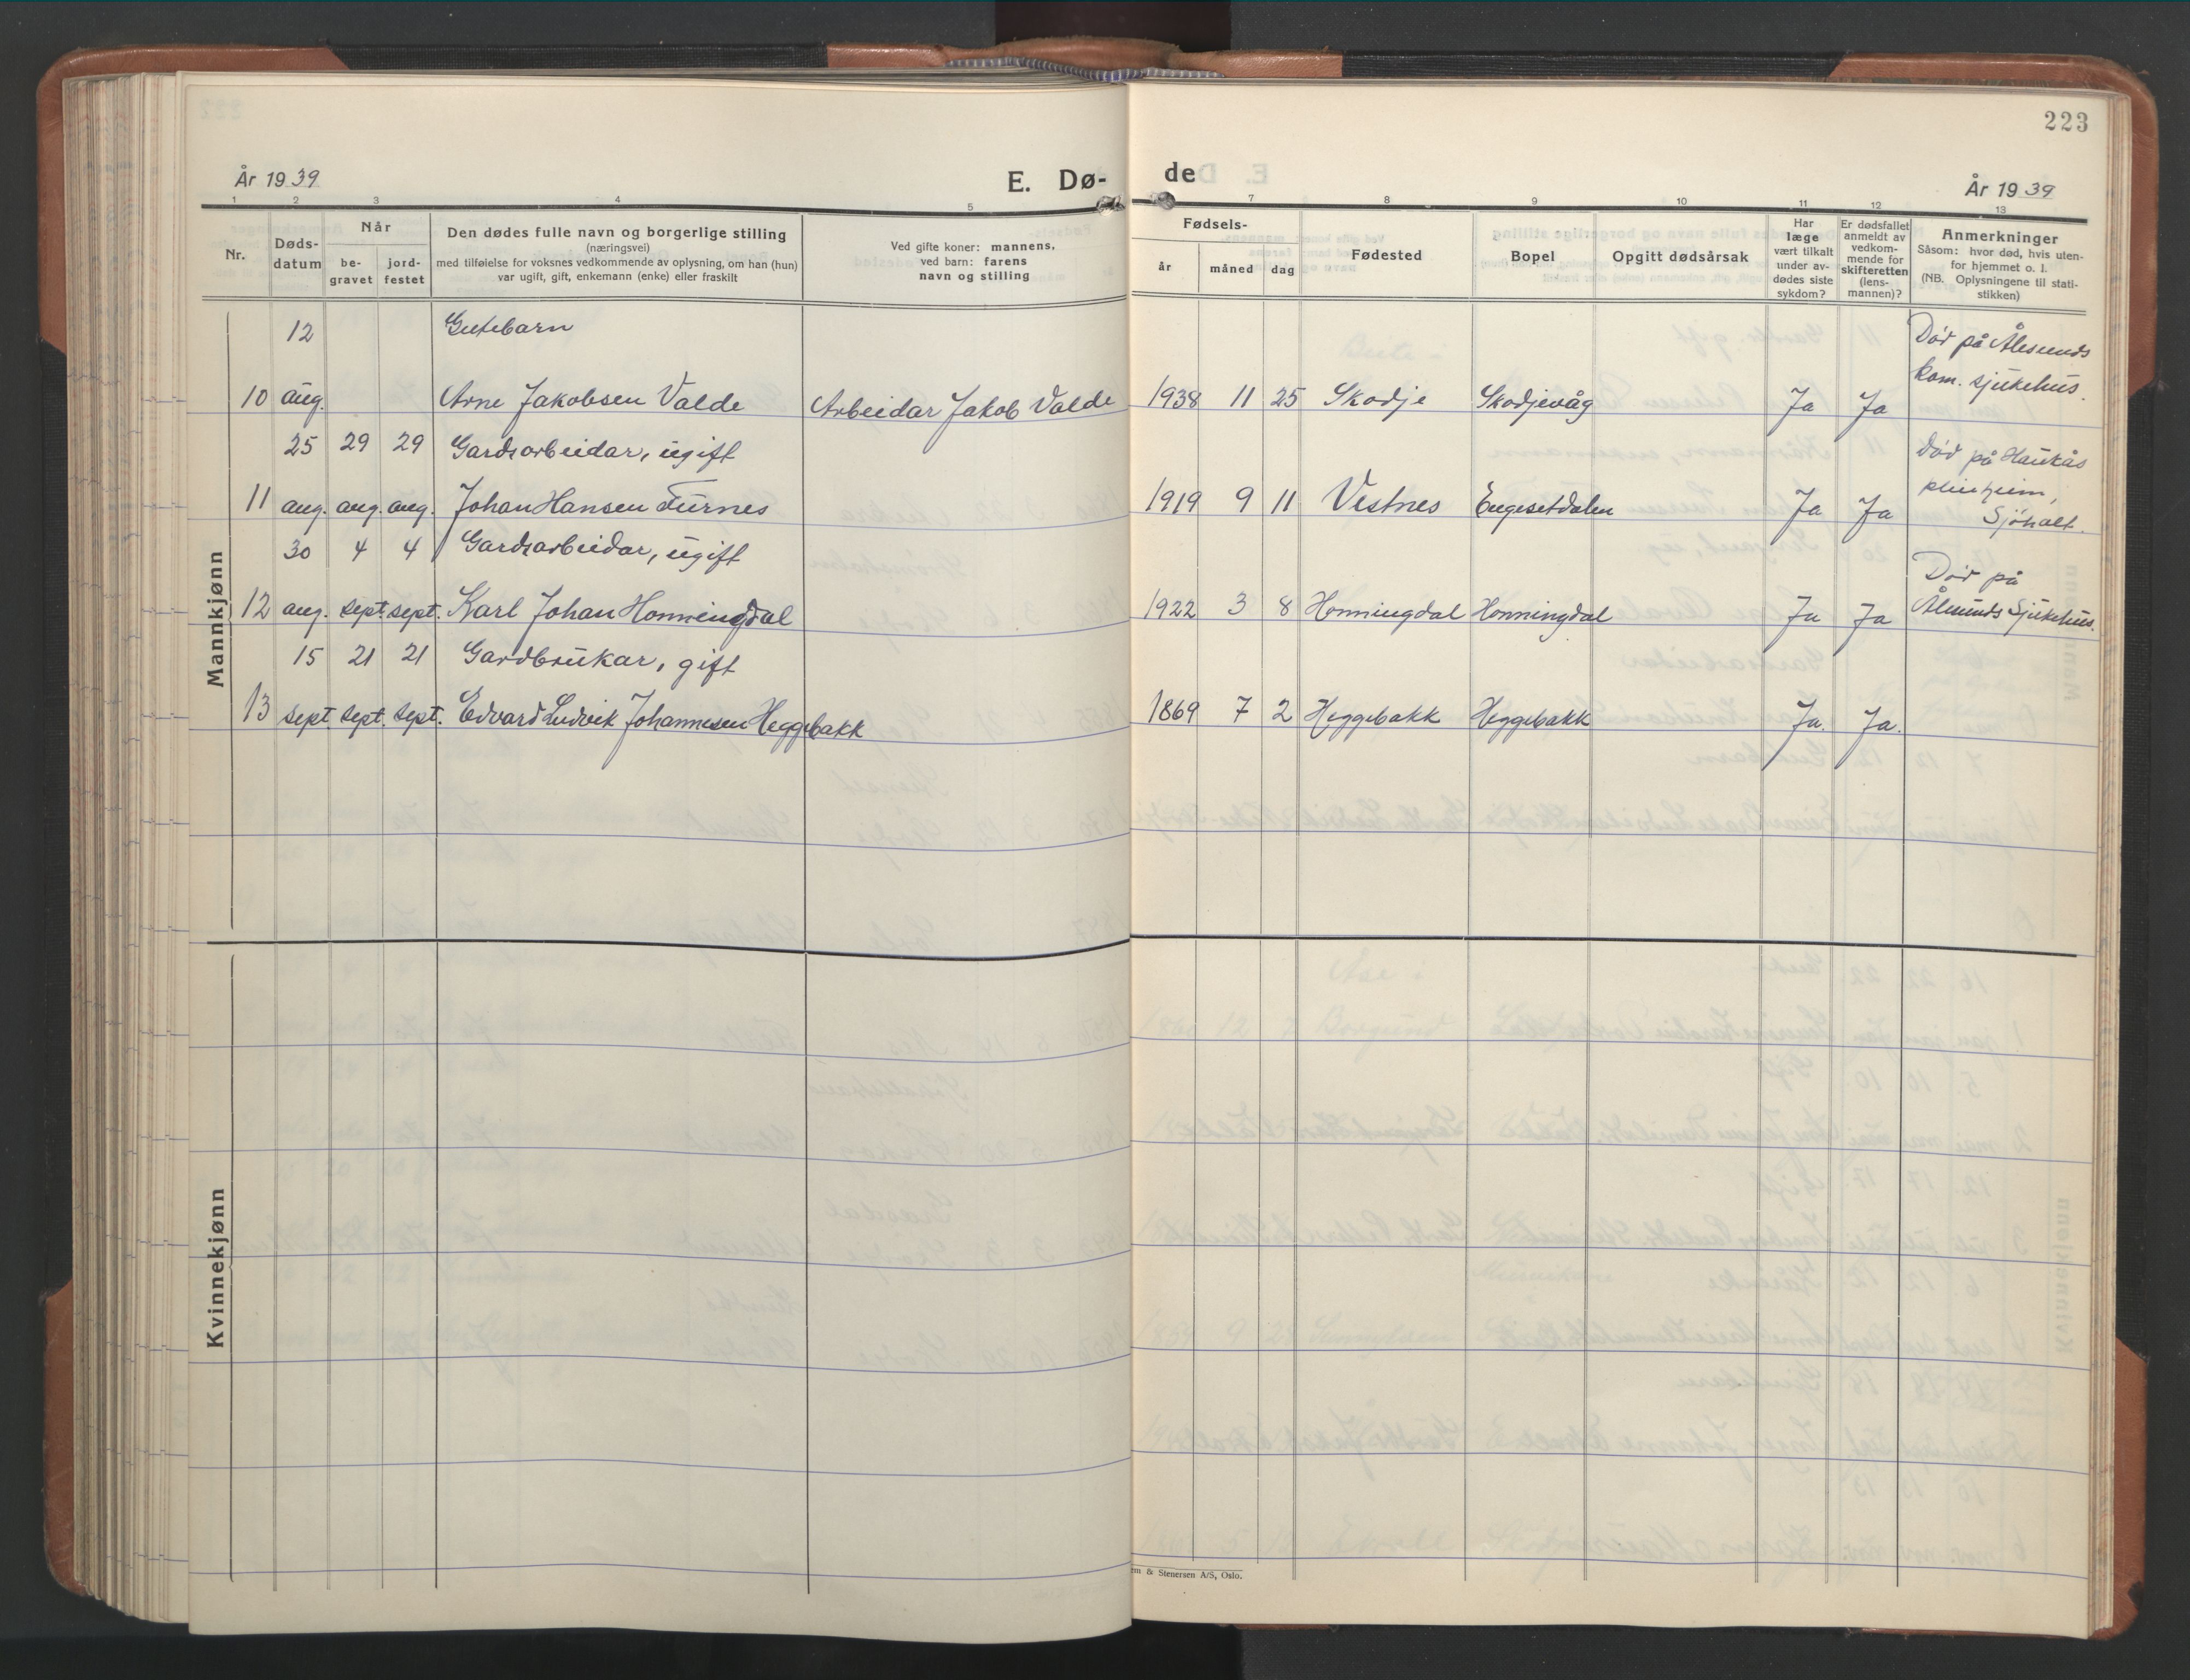 223
År 1939
E. Dø-
de
År 1939
1 2 3 4 5 7 8 9 10 11 12 13
Nr.
Døds-
datum
Når
be-
gravet
jord-
festet
Den dødes fulle navn og borgerlige stilling
(næringsvei)
med tilføielse for voksnes vedkommende av oplysning, om han (hun)
var ugift, gift, enkemann (enke) eller fraskilt
Ved gifte koner: mannens,
ved barn: farens
navn og stilling
Fødsels-
år måned dag
Fødested
Bopel
Opgitt dødsårsak
Har
læge
vært tilkalt
under av-
dødes siste
sykdom?
Er dødsfallet
anmeldt av
vedkom-
mende for
skifteretten
(lens-
mannen)?
Anmerkninger
Såsom: hvor død, hvis uten-
for hjemmet o. l.
(NB. Oplysningene til stati-
stikken)
Mannkjønn
12 Gutebarn
10 aug. Arne Jakobsen Valde Arbeidar Jakob Valde 1938 11 25 Skodje Skodjevåg Ja Ja
Død på Ålesunds
kom. sjukehus.
25 29 29 Gardsarbeidar, ugift
11 aug. aug. aug. Johan Hansen Furnes 1919 9 11 Vestnes Engesetdalen Ja Ja
Død på Haukås
pleiheim,
Sjøholt.
30 4 4 Gardsarbeidar, ugift
12 aug. sept. sept. Karl Johan Honningdal 1922 3 8 Honningdal Honningdal Ja Ja
Død på
Ålesunds Sjukehus.
15 21 21 Gardbrukar, gift
13 sept. sept. sept. Edvard Ludvik Johannesen Heggebakk 1869 7 2 Heggebakk Heggebakk Ja. Ja.
Kvinnekjønn
& Stenersen A/S, Oslo.